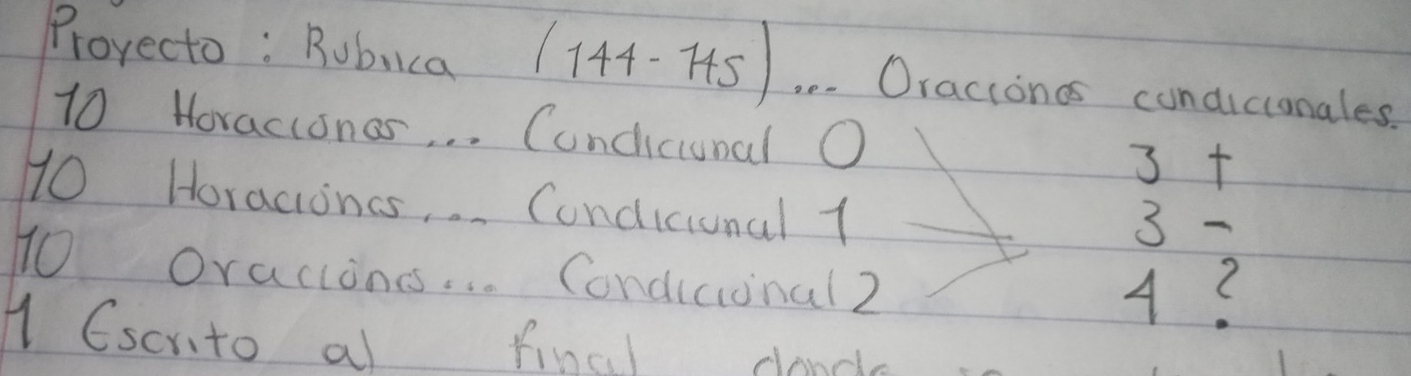 Proyecto : Rubrica (144-145)... Oraciónes condicionales.
10 Horaciónes... Condicional 0 3 +
10 Horaciónes... Condicional 1 3 -
10 Oraciónes... Condicional 2 4 ?
1 Escrito al final donde